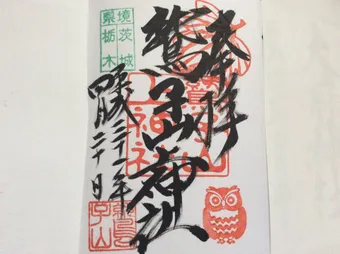 奉拝
鷲子山上神社
境茨城
県栃木
平成三十一年
四月二十日